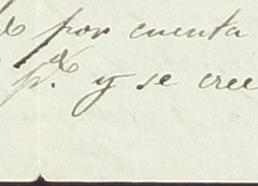 por cuenta
y se cree